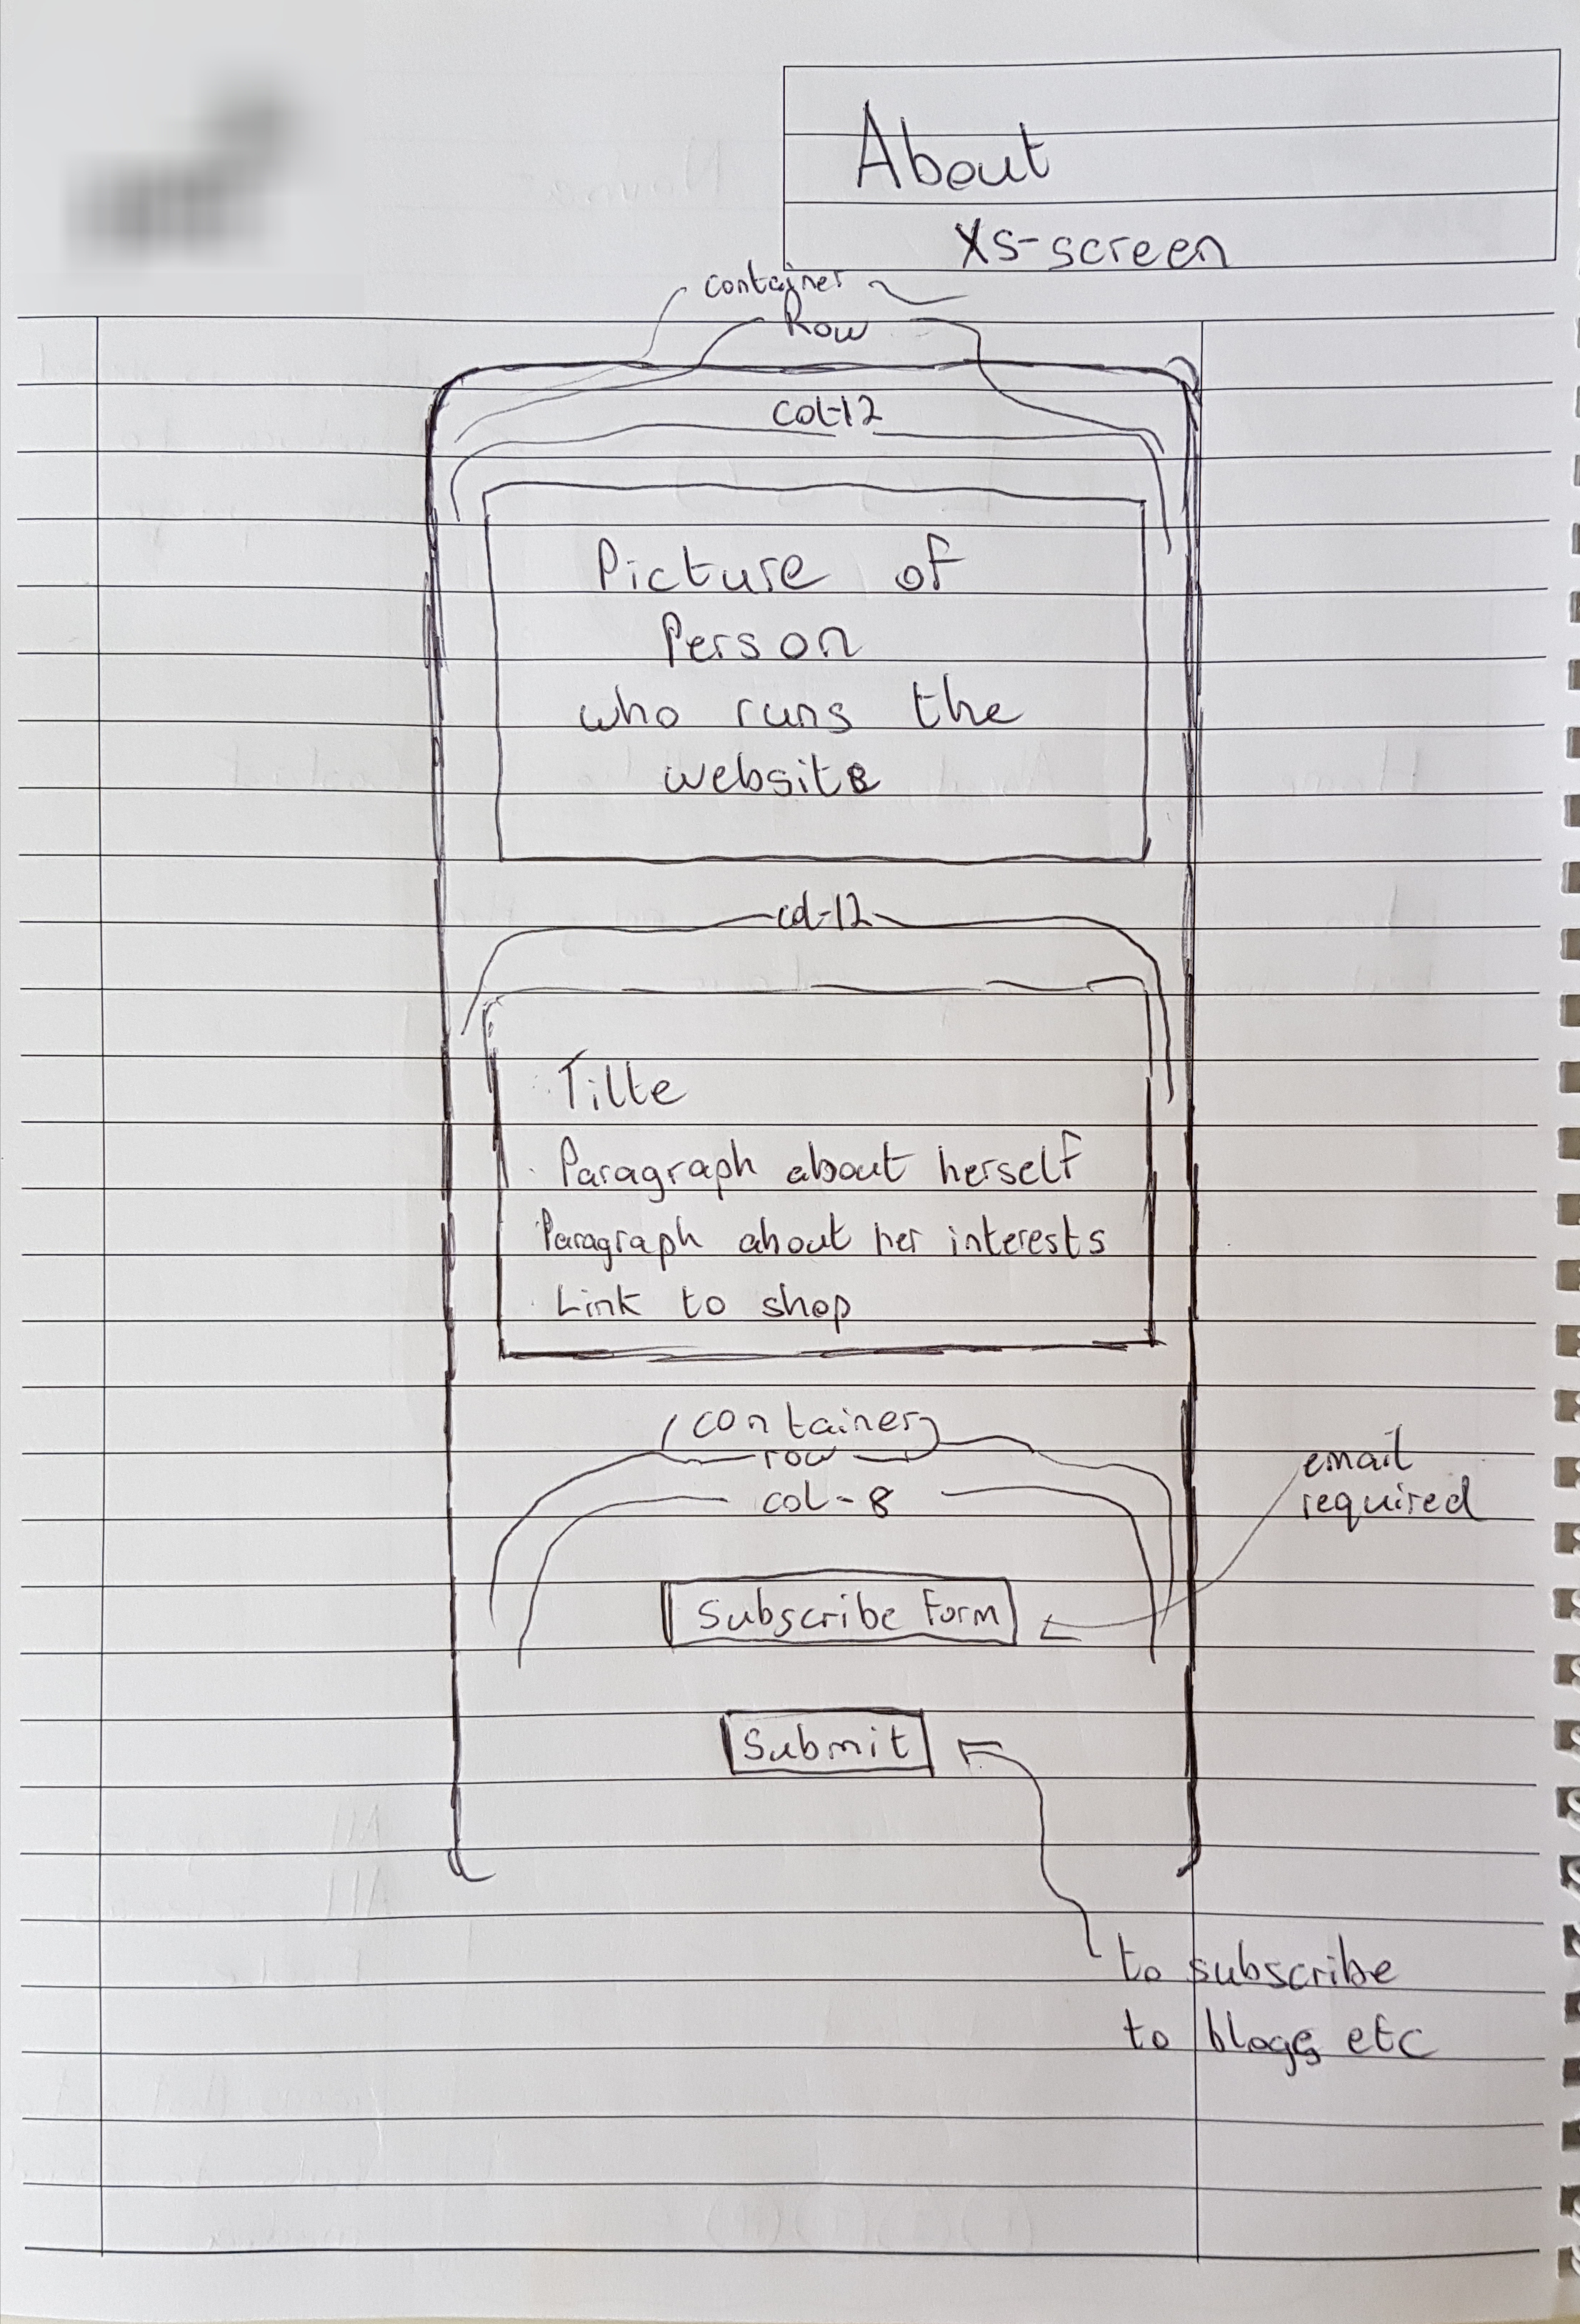 About
xs-screen
container
Row
col-12
Picture of
Person
who runs the
website
col-12
Title
Paragraph about herself
Paragraph about her interests
Link to shop
container
row
col-8
email
required
Subscribe Form
Submit
to subscribe
to blogs etc